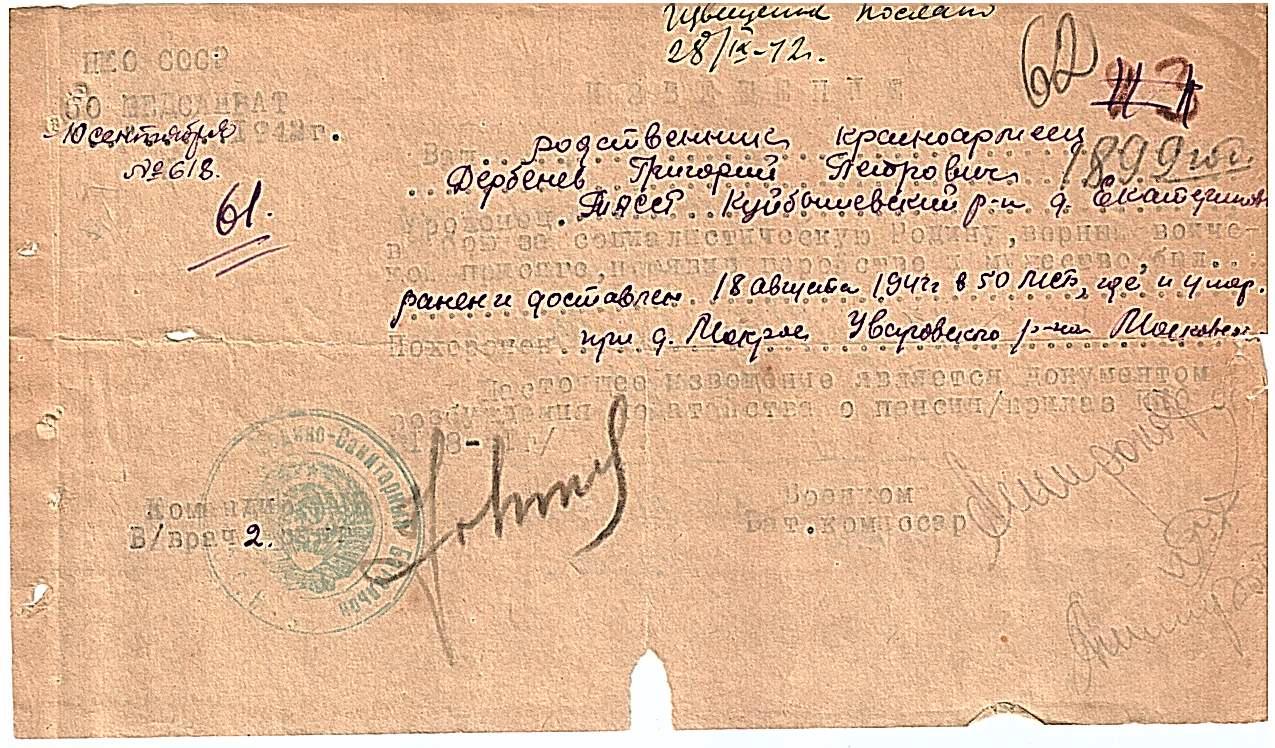 Извещение послано
28/IX-42.
62
НКО СССР
50 МЕДСАНБАТ
ИЗВЕЩЕНИЕ
10 сентября 1942г.
№ 618.
61.
Ваш родственник красноармеец
1899
Дербенев Григорий Петрович
Уроженец ТАССР Куйбышевский р-н д. Екатеринов
в бою за социалистическую Родину, верный воинс-
кой присяге, проявив геройство и мужество, был
ранен и доставлен 18 августа 1942г в 50 МСБ, где и умер.
Похоронен при д. Мокрое Уваровского р-на Московск
Настоящее извещение является документом
возбуждения ходатайства о пенсии/приказ НКО
Медико-Санитарный Батальон
Командир
В/врач 2 ранга
Военком
Бат.комиссар